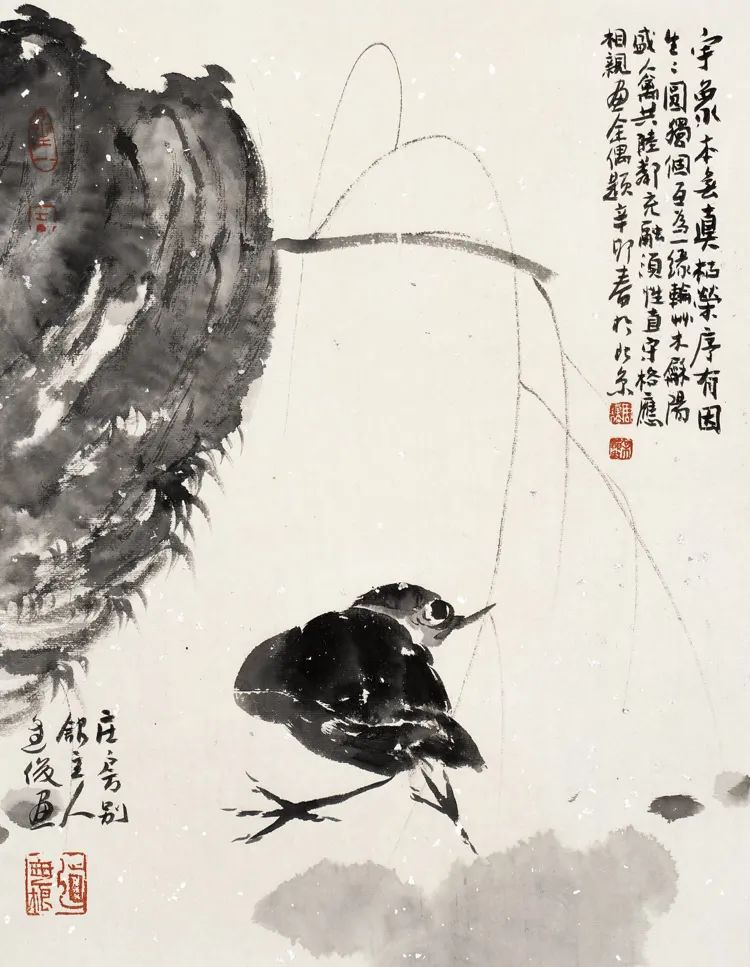 宇象本無真枯榮序有因
生〻圓獨個互為一緣輪艸木蘇陽
盛人禽共陸鄰充融須性直守格應
相親畫余偶題辛卯春於北京
庄房別
館主人
道俊畫